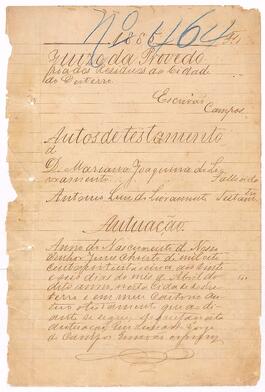 Nº 464
1885
Juizo da Provedo
ria dos residuos da Cidade
do Desterro
Escrivão
Campos
Autos de testamento
de
D. Marianna Joaquina do Li
vramento Fallecida
Antonio Luis do Livramento Testamtro
Autuação
Anno do Nascimento de Nosso
Senhor Jesus Christo de mil oito
centos oitenta e cinco aos vinte
e seis dias do mes de Abril do
dito anno, nesta Cidade do Des
terro e em meu Cartorio au
tuo o testamento que a di
ante se segue;
de Campos Escrivão